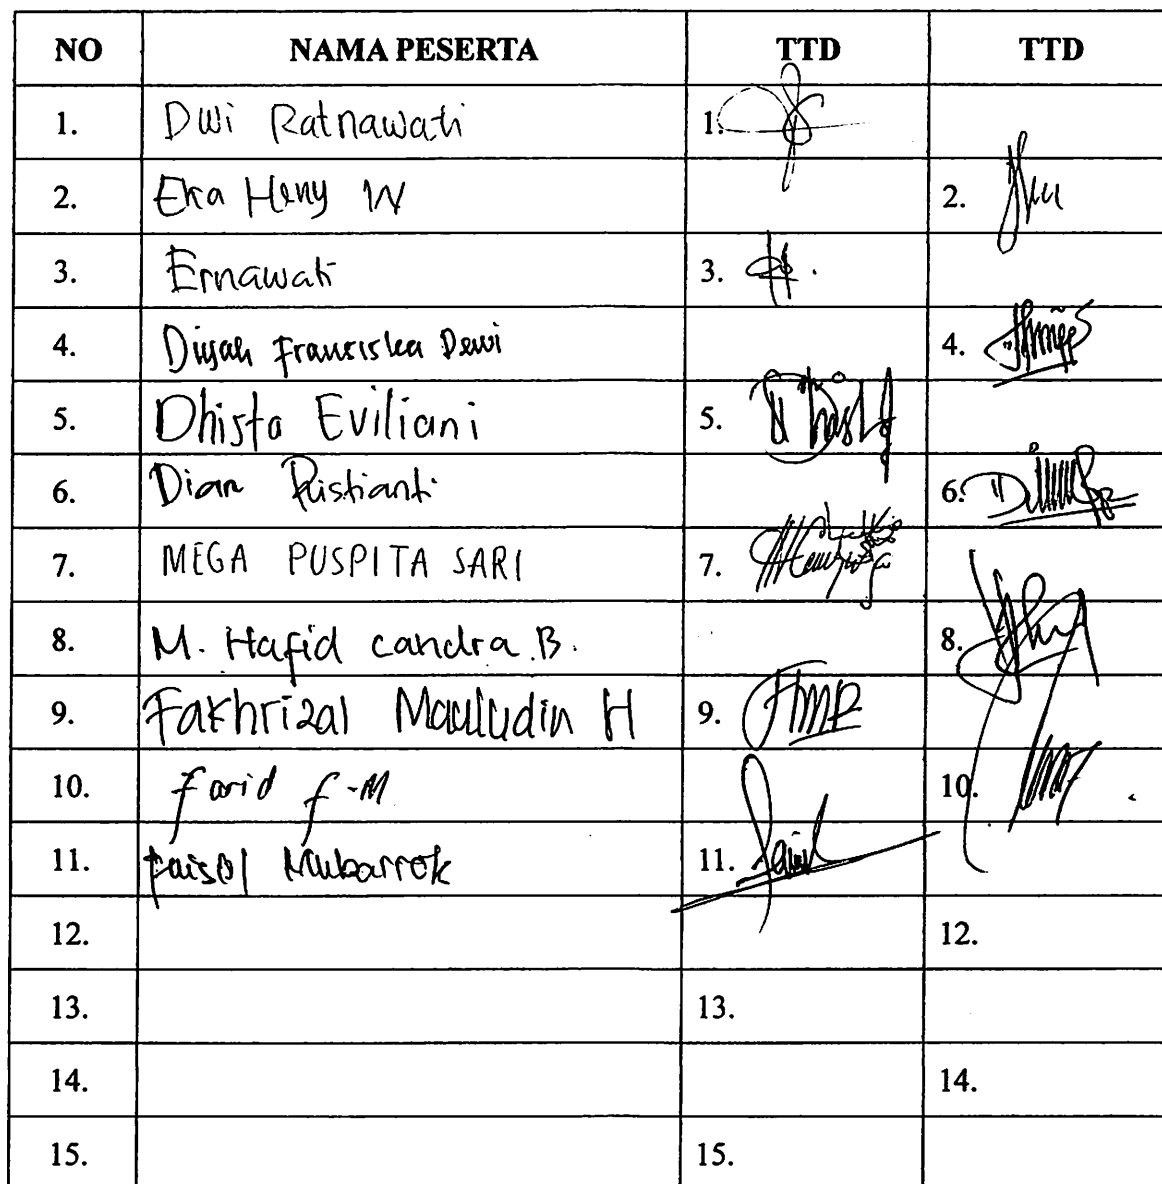 NO NAMA PESERTA TTD TTD
1. Dwi Ratnawati 1.
2. Eka Heny W 2.
3. Ernawati 3.
4. Diyah Franciska Dewi 4.
5. Dhista Eviliani 5.
6. Dian Ristianti 6.
7. MEGA PUSPITA SARI 7.
8. M. Hafid candra B. 8.
9. Fakhrizal Mauludin H 9.
10. farid f-M 10.
11. faisol Mubarrok 11.
12. 12.
13. 13.
14. 14.
15. 15.